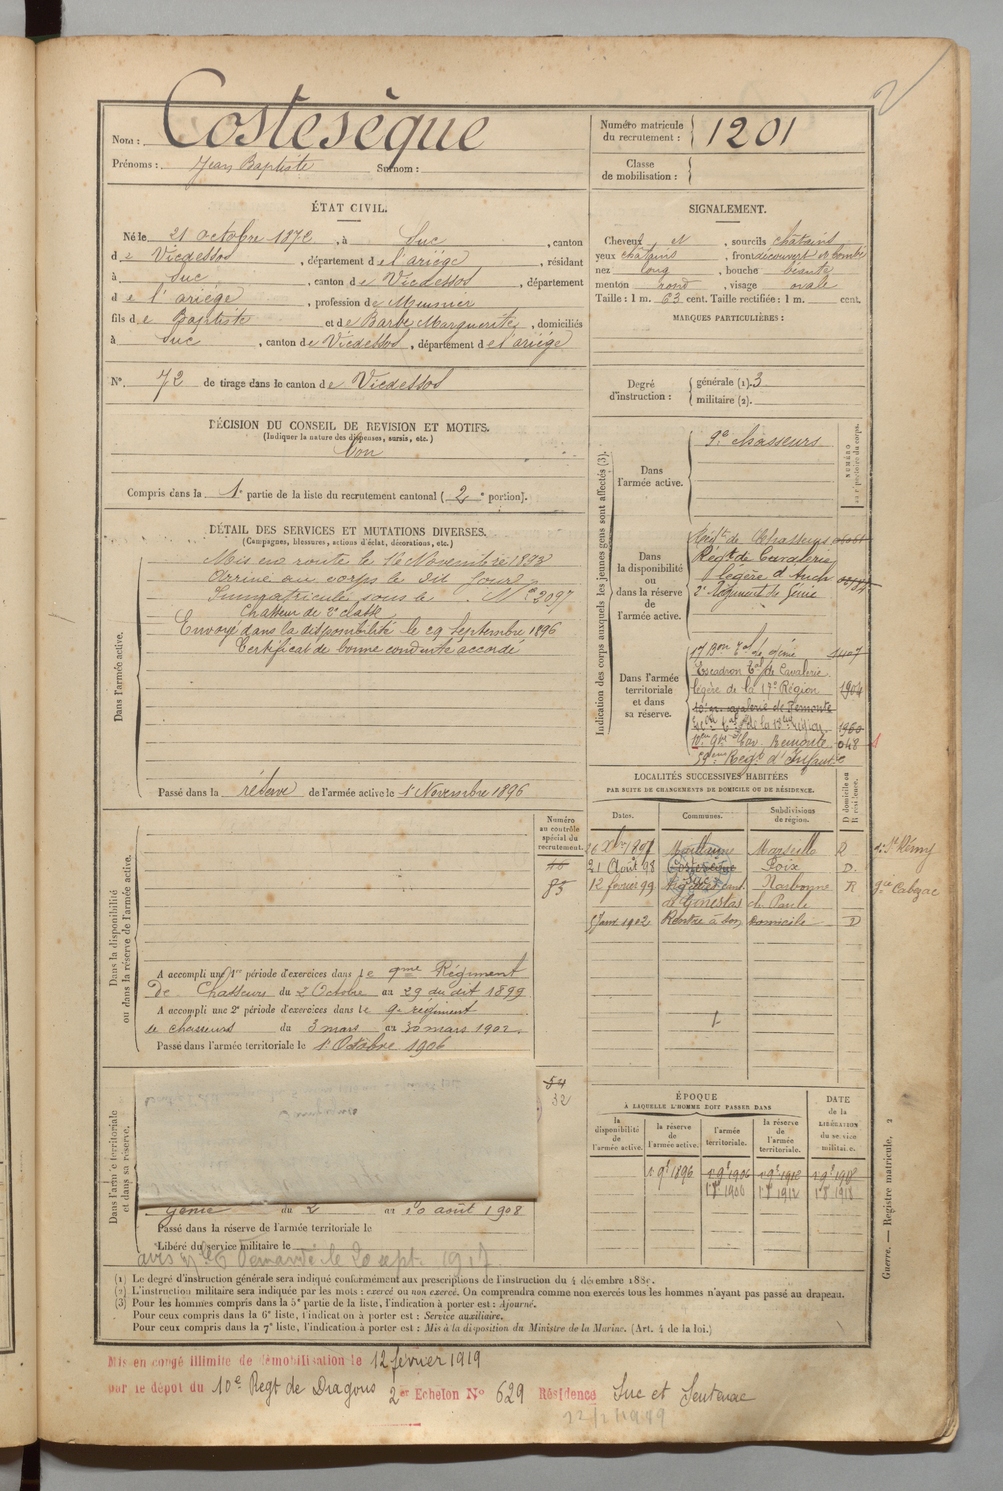 2
Nom : Costesèque
Prénoms : Jean Baptiste Surnom :
Numéro matricule du recrutement : 1201
Classe de mobilisation :
ÉTAT CIVIL.
Né le 21 octobre 1872, à Suc, canton
de Vicdessos, département de l'ariège, résidant
à Suc, canton de Vicdessos, département
de l'ariège, profession de Meunier
fils de Baptiste et de Barbe Marguerite, domiciliés
à Suc, canton de Vicdessos, département de l'ariège
N° 72 de tirage dans le canton de Vicdessos
SIGNALEMENT.
Cheveux N, sourcils châtains
yeux châtains, front découvert et bombé
nez long, bouche
menton rond, visage ovale
Taille : 1 m. 63 cent. Taille rectifiée : 1 m. cent.
MARQUES PARTICULIÈRES :
Degré d'instruction : générale (1). 3
militaire (2).
DÉCISION DU CONSEIL DE REVISION ET MOTIFS.
(Indiquer la nature des dispenses, sursis, etc.)
bon
Compris dans la 1e partie de la liste du recrutement cantonal (2e portion).
DÉTAIL DES SERVICES ET MUTATIONS DIVERSES.
(Campagnes, blessures, actions d'éclat, décorations, etc.)
Dans l'armée active.
Mis en route le 12 Novembre 1893
Arrivé au corps le dit jour
Immatriculé sous le N° 2097
Chasseur de 2e classe
Envoyé dans la disponibilité le 29 Septembre 1896
Certificat de bonne conduite accordé
Passé dans la réserve de l'armée active le 1er Novembre 1896
Indication des corps auxquels les jeunes gens sont affectés (3).
NUMÉRO au répertoire du corps.
Dans l'armée active.
9e Chasseurs
Dans la disponibilité ou dans la réserve de l'armée active.
Régt de Chasseurs
Régt de Cavalerie
légère d'Auch
2e Régiment de Génie
Dans l'armée territoriale et dans sa réserve.
17 Bon Tal de génie 1407
Escadron Tal de Cavalerie
légère de la 17e Région 1904
10e cavalerie de Remonte
de la 18me région 1960
Cav. Remonte 048
59eme Régt d'Infantie
LOCALITÉS SUCCESSIVES HABITÉES
PAR SUITE DE CHANGEMENTS DE DOMICILE OU DE RÉSIDENCE.
Dates. Communes. Subdivisions de région. D domicile ou R résidence.
Marseille R St Rémy
21 Août 98 Costesèque Foix D.
12 février 99 Narbonne R gde Cabezac
de Ginestas
5 Janv 1902 Rentre à son domicile D
Dans la disponibilité ou dans la réserve de l'armée active.
Numéro au contrôle spécial du recrutement.
85
A accompli une 1re période d'exercices dans le 9me Régiment
de Chasseurs du 2 Octobre au 29 du dit 1899
A accompli une 2e période d'exercices dans le 9e régiment
de chasseurs du 3 mars au 30 mars 1902.
Passé dans l'armée territoriale le 1er Octobre 1906
Dans l'armée territoriale et dans sa réserve.
54
32
génie du 2 au 10 août 1908
Passé dans la réserve de l'armée territoriale le
Libéré du service militaire le
avis Demandé le 20 sept. 1917
ÉPOQUE
À LAQUELLE L'HOMME DOIT PASSER DANS
la disponibilité de l'armée active. la réserve de l'armée active. l'armée territoriale. la réserve de l'armée territoriale.
DATE de la LIBÉRATION du service militaire.
1 9e 1896 1 9e 1906 1 9e 1912 1 9e 1918
1900 1912 1918
Guerre. — Registre matricule, 2
(1) Le degré d'instruction générale sera indiqué conformément aux prescriptions de l'instruction du 4 décembre 1889.
(2) L'instruction militaire sera indiquée par les mots : exercé ou non exercé. On comprendra comme non exercés tous les hommes n'ayant pas passé au drapeau.
(3) Pour les hommes compris dans la 5e partie de la liste, l'indication à porter est : Ajourné.
Pour ceux compris dans la 6e liste, l'indication à porter est : Service auxiliaire.
Pour ceux compris dans la 7e liste, l'indication à porter est : Mis à la disposition du Ministre de la Marine. (Art. 4 de la loi.)
Mis en congé illimité de démobilisation le 12 février 1919
par le dépôt du 10e Regt de Dragons 2er Echelon N° 629 Résidence Suc et Sentenac
12/2/1919